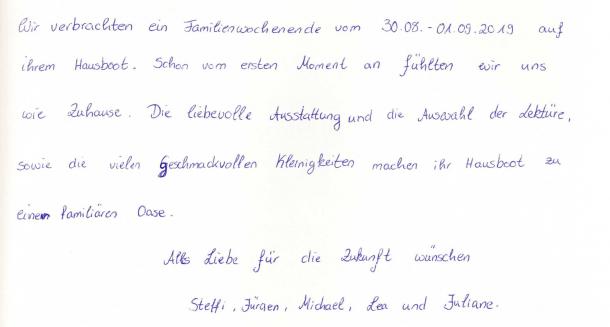 Wir verbrachten ein Familienwochenende vom 30.08.-01.09.2019 auf
ihrem Hausboot. Schon vom ersten Moment an fühlten wir uns
wie Zuhause. Die liebevolle Ausstattung und die Auswahl der Lektüre,
sowie die vielen geschmackvollen Kleinigkeiten machen ihr Hausboot zu
einem familiären Oase.
Alles Liebe für die Zukunft wünschen
Steffi, Jürgen, Michael, Lea und Juliane.